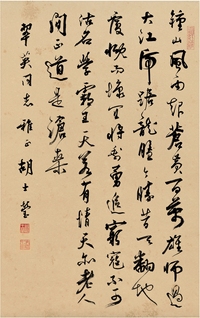 鐘山風雨起蒼黃百萬雄師過
大江虎踞龍盤今勝昔天翻地
覆慨而慷宜將剩勇追窮寇不可
沽名學霸王天若有情天亦老人
間正道是滄桑
翠英同志雅正 胡士瑩